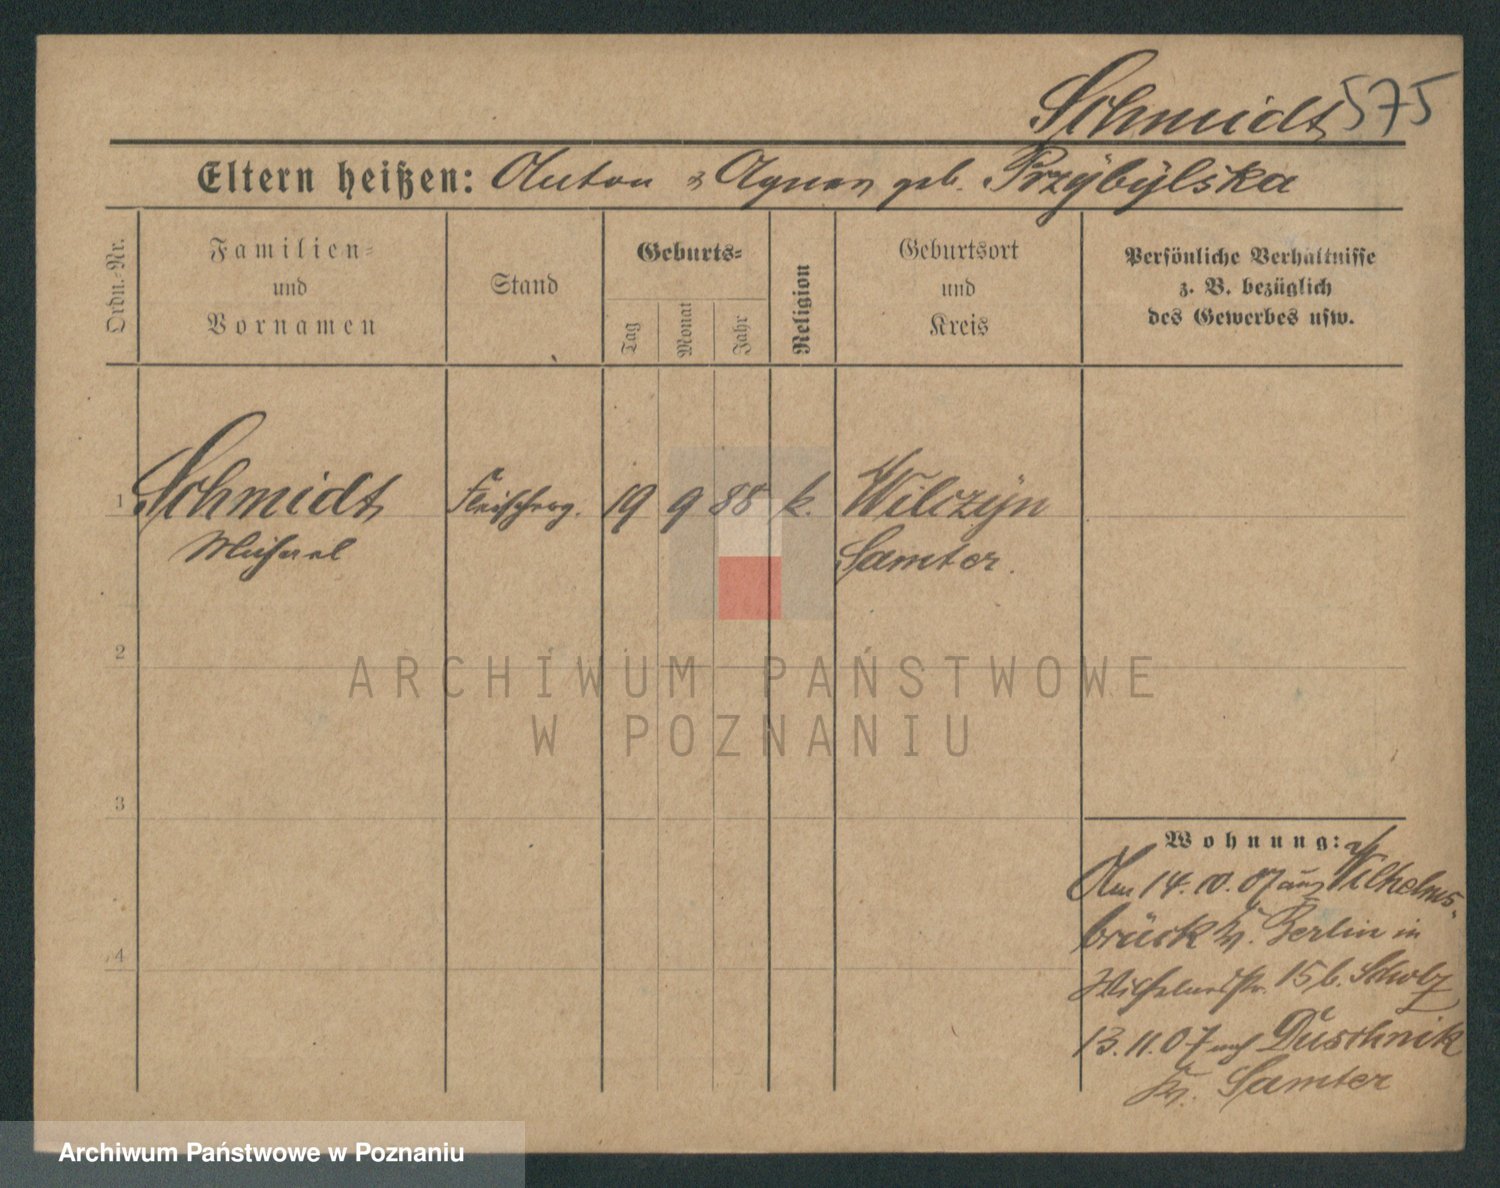 Schmidt 575
Eltern heißen: Anton & Agnes geb. Przybylska
Ordn.-Nr.
Familien-
und
Vornamen
Stand
Geburts-
Tag
Monat
Jahr
Religion
Geburtsort
und
Kreis
Persönliche Verhältnisse
z. B. bezüglich
des Gewerbes usw.
1 Schmidt Fleischerg. 19 9 88 k. Wilczyn
Michael Samter.
2
3
4
ARCHIWUM PAŃSTWOWE
W POZNANIU
Wohnung:
Am 14.10.07 aus Wilhelms-
brück Kr. Berlin in
Wilhelmstr. 15 b. Scholz
13.11.07 nach Duschnik
Kr. Samter
Archiwum Państwowe w Poznaniu